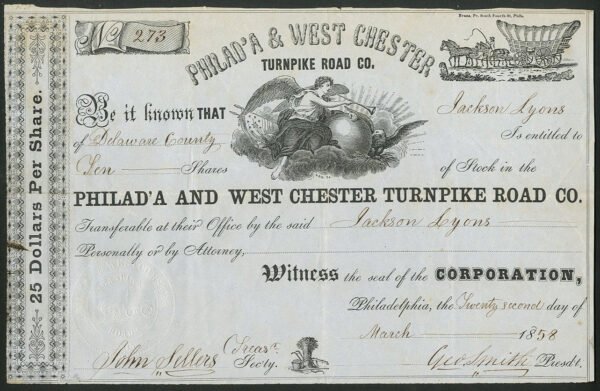 Evans, Pr. South Fourth St. Phila.
No 273
PHILAD'A & WEST CHESTER
TURNPIKE ROAD CO.
Be it known THAT Jackson Lyons
of Delaware County Is entitled to
Ten Shares of Stock in the
PHILAD'A AND WEST CHESTER TURNPIKE ROAD CO.
Transferable at their Office by the said Jackson Lyons
Personally or by Attorney,
Witness the seal of the CORPORATION,
Philadelphia, the Twenty second day of
March 1858
John Sellers Treasr. Secty. Geo Smith Presdt.
25 Dollars Per Share.